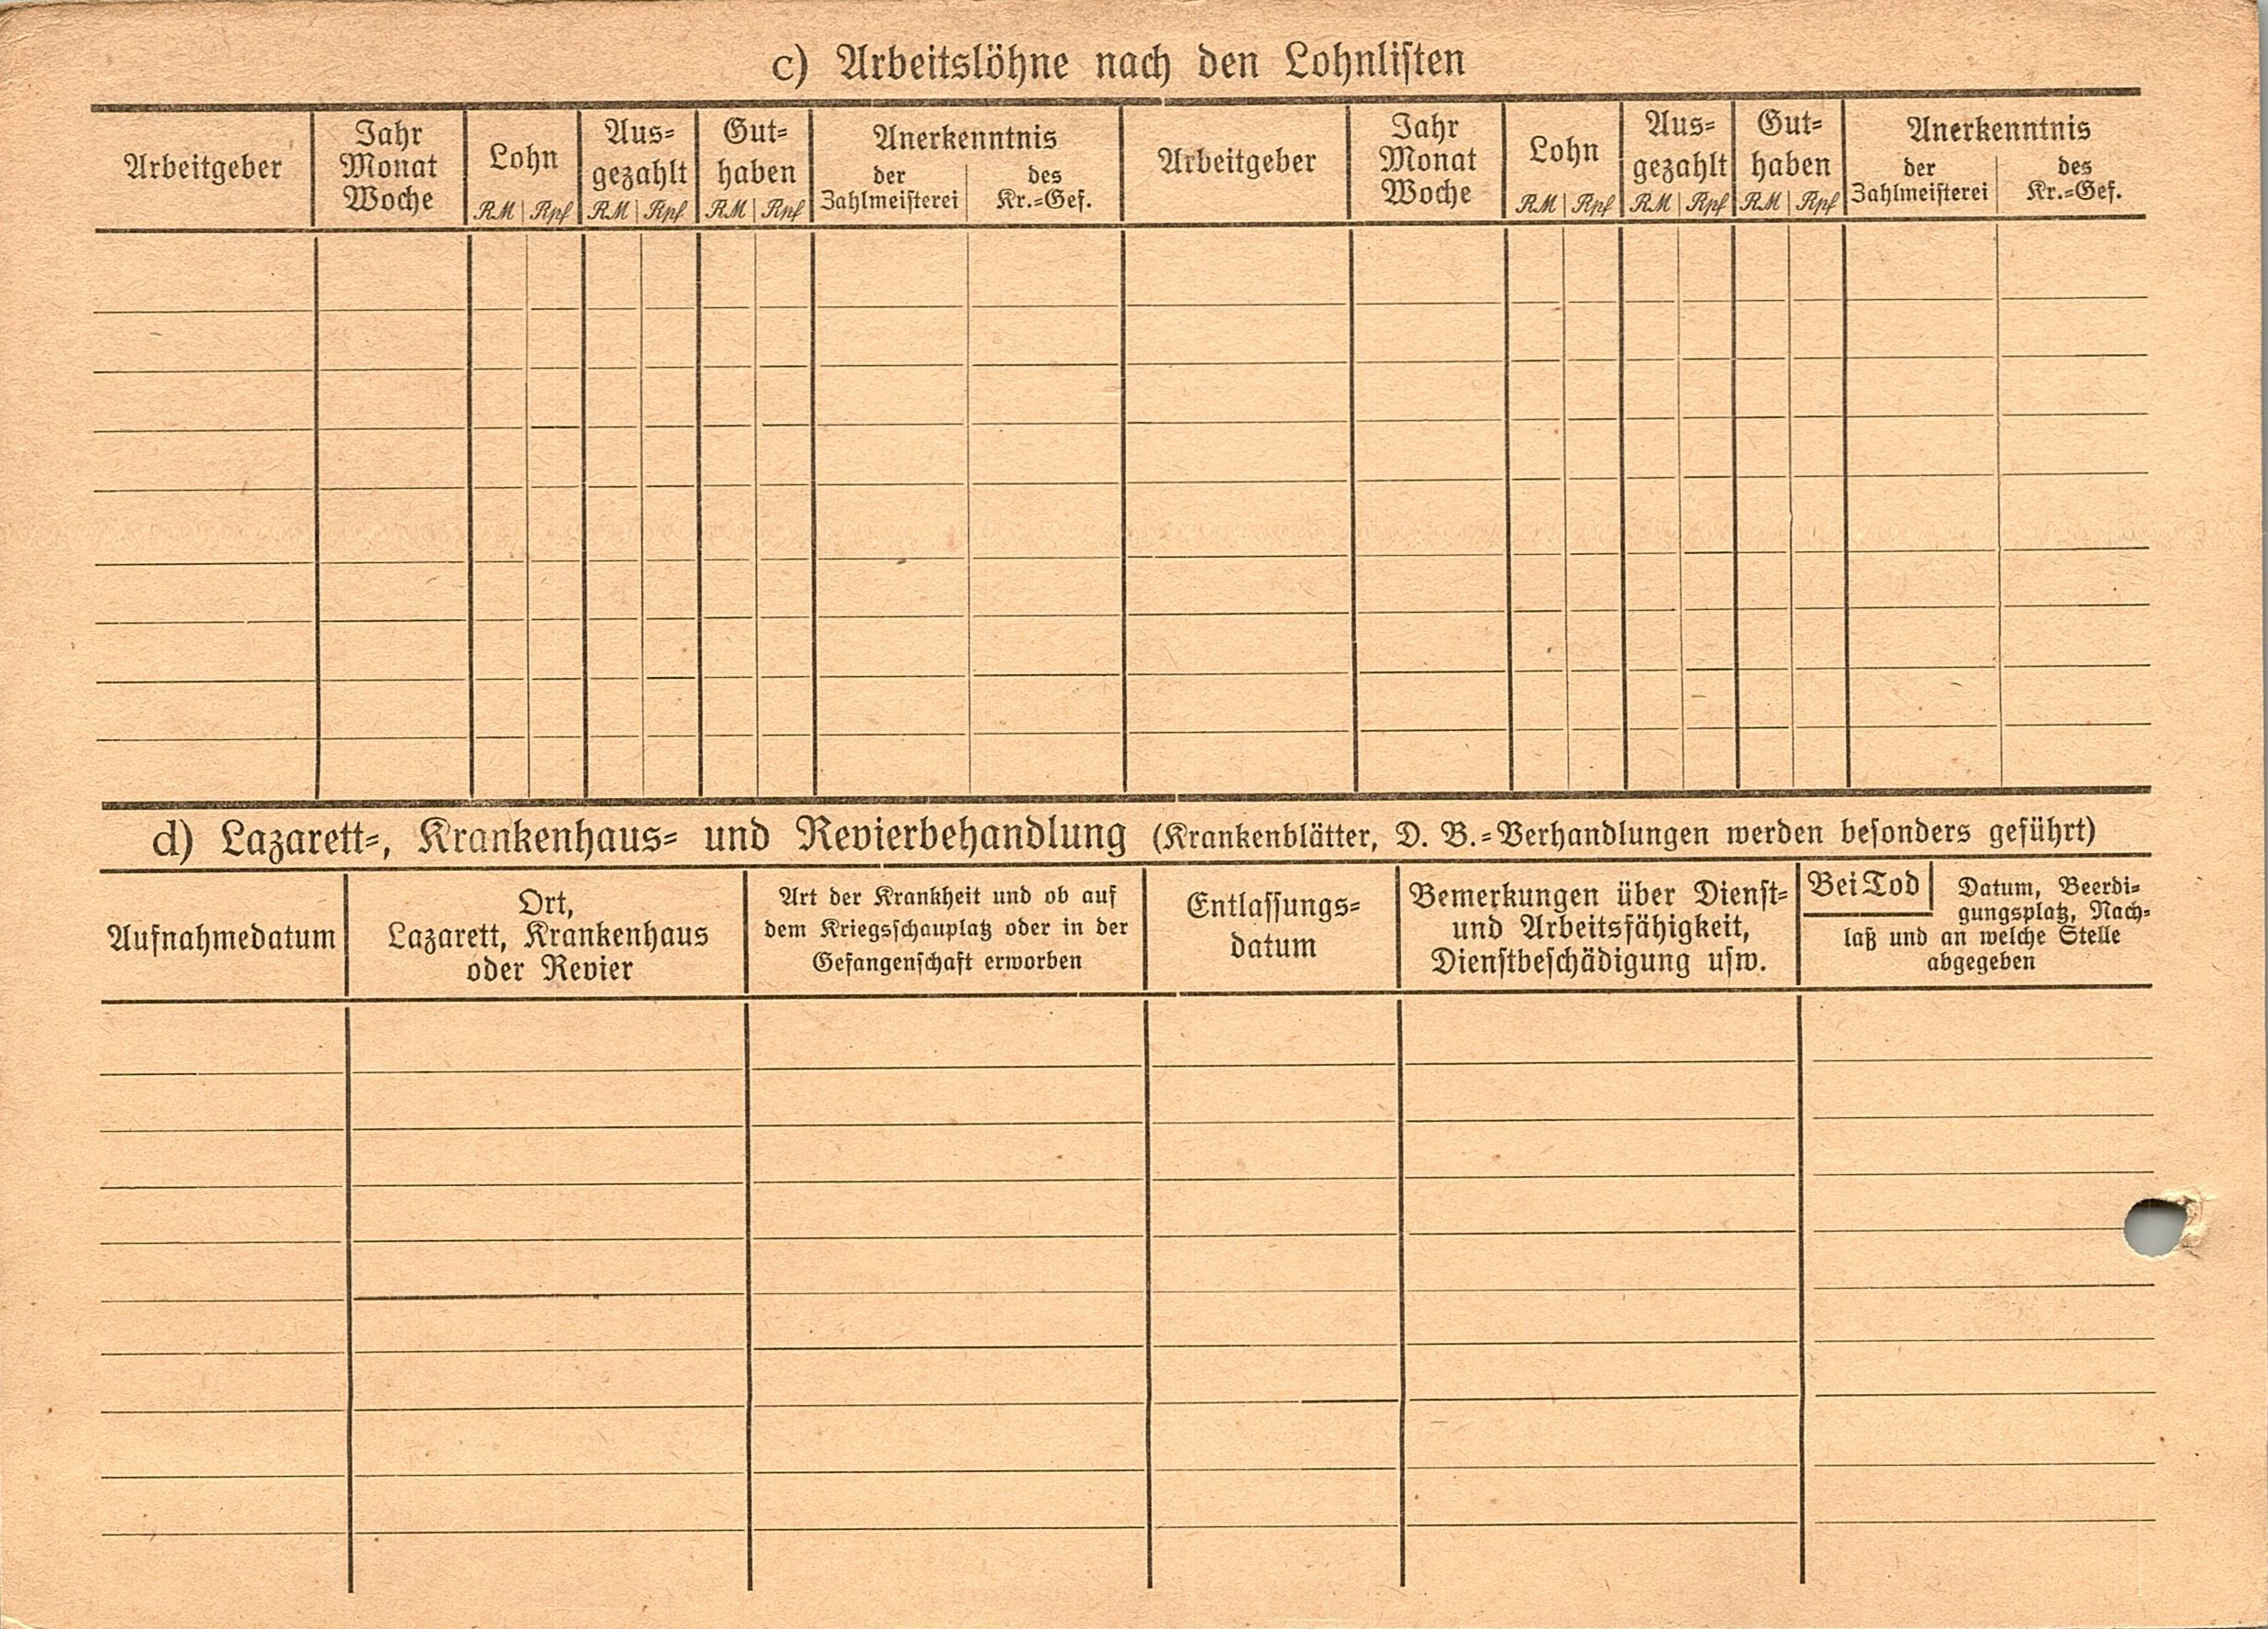 c) Arbeitslöhne nach den Lohnlisten
Arbeitgeber
Jahr
Monat
Woche
Lohn
RM | Rpf
Aus-
gezahlt
RM | Rpf
Gut-
haben
RM | Rpf
Anerkenntnis
der
Zahlmeisterei
des
Kr.-Gef.
Arbeitgeber
Jahr
Monat
Woche
Lohn
RM | Rpf
Aus-
gezahlt
RM | Rpf
Gut-
haben
RM | Rpf
Anerkenntnis
der
Zahlmeisterei
des
Kr.-Gef.
d) Lazarett-, Krankenhaus- und Revierbehandlung (Krankenblätter, D. B.-Verhandlungen werden besonders geführt)
Aufnahmedatum
Ort,
Lazarett, Krankenhaus
oder Revier
Art der Krankheit und ob auf
dem Kriegsschauplatz oder in der
Gefangenschaft erworben
Entlassungs-
datum
Bemerkungen über Dienst-
und Arbeitsfähigkeit,
Dienstbeschädigung usw.
Bei Tod
Datum, Beerdi-
gungsplatz, Nach-
laß und an welche Stelle
abgegeben